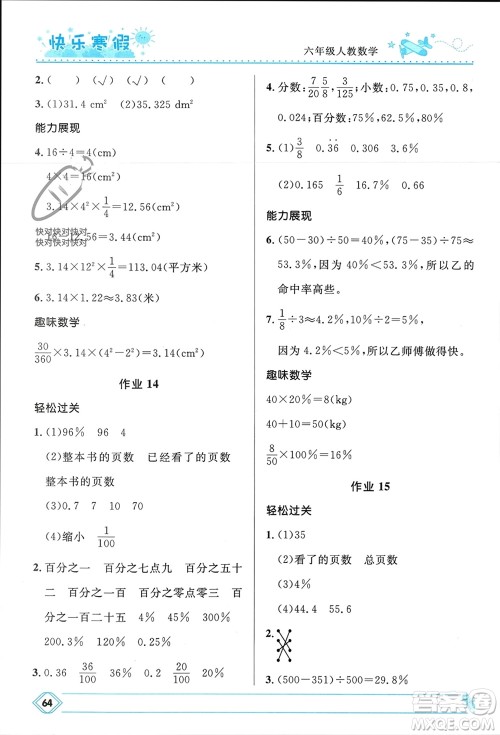 快乐寒假
六年级人教数学
2.(　　)　(√)　(√)　(　　)
3.(1)31.4 cm　(2)15.7 cm
能力展现
4.16÷4=4(cm)
4×4=16(cm²)
3.14×4²×1/4=12.56(cm²)
16-12.56=3.44(cm²)
快对快对快对
快对快对快对
5.3.14×12²×1/4=113.04(平方米)
6.3.14×1.22≈3.83(米)
趣味数学
30/360×3.14×(4²-2²)=3.14(cm²)
作业 14
轻松过关
1.(1)96%　96　4
(2)整本书的页数　已经看了的页数
整本书的页数
(3)0.7　7　10　70
(4)缩小　1/100
2.百分之一　百分之七点九　百分之五十
二　百分之零点零三　百分之一百
百分之一百二十五　4%　18%
200.3%　12.5%　100%
3.0.36　36/100　36%
4.分数：7/20　7/5/8　3/125；小数：0.75，0.35，0.8，
0.024；百分数：75%，62.5%，80%
5.(1)3/8　0.3̇6̇　33%
(2)0.167　1/6　16.6%　0.16
能力展现
6.(50-30)÷50=40%　(75-35)÷75≈
53.3%　因为53.3%>40%，所以乙的
命中率高些。
7.1/8÷3≈4.2%　1/10÷2=5%
因为4.2%<5%，所以乙师傅做得快。
趣味数学
40×20%=8(kg)
40+10=50(kg)
8/50×100%=16%
作业 15
轻松过关
1.(1)35
(2)看了的页数　总页数
(3)4%
(4)44.4　55.6
2.
3.(500-351)÷500=29.8%
64